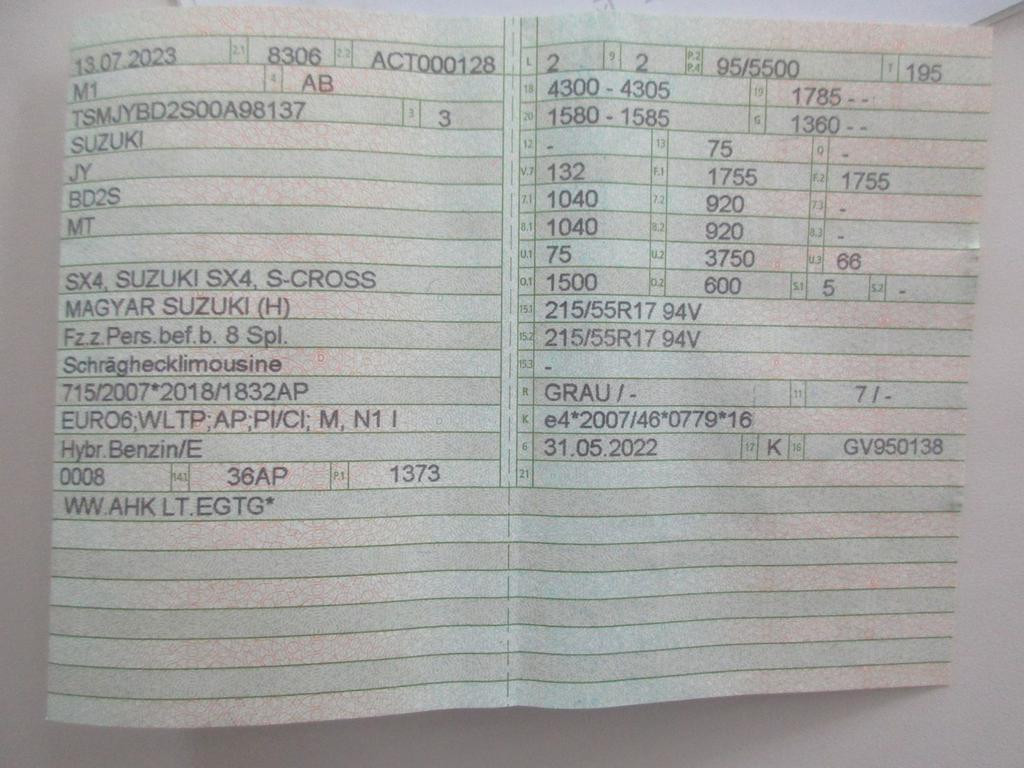 13.07.2023 2.1 8306 2.2 ACT000128
M1 4 AB
TSMJYBD2S00A98137 3 3
SUZUKI
JY
BD2S
MT
SX4, SUZUKI SX4, S-CROSS
MAGYAR SUZUKI (H)
Fz.z.Pers.bef.b. 8 Spl.
Schräghecklimousine
715/2007*2018/1832AP
EURO6;WLTP;AP;PI/CI; M, N1 I
Hybr.Benzin/E
0008 14.1 36AP P.1 1373
WW.AHK LT.EGTG*
L 2 9 2 P.2 P.4 95/5500 T 195
18 4300 - 4305 19 1785 - -
20 1580 - 1585 G 1360 - -
12 - 13 75 Q -
V.7 132 F.1 1755 F.2 1755
7.1 1040 7.2 920 7.3 -
8.1 1040 8.2 920 8.3 -
U.1 75 U.2 3750 U.3 66
O.1 1500 O.2 600 S.1 5 S.2 -
15.1 215/55R17 94V
15.2 215/55R17 94V
15.3 -
R GRAU / - 11 7 / -
K e4*2007/46*0779*16
6 31.05.2022 17 K 16 GV950138
21